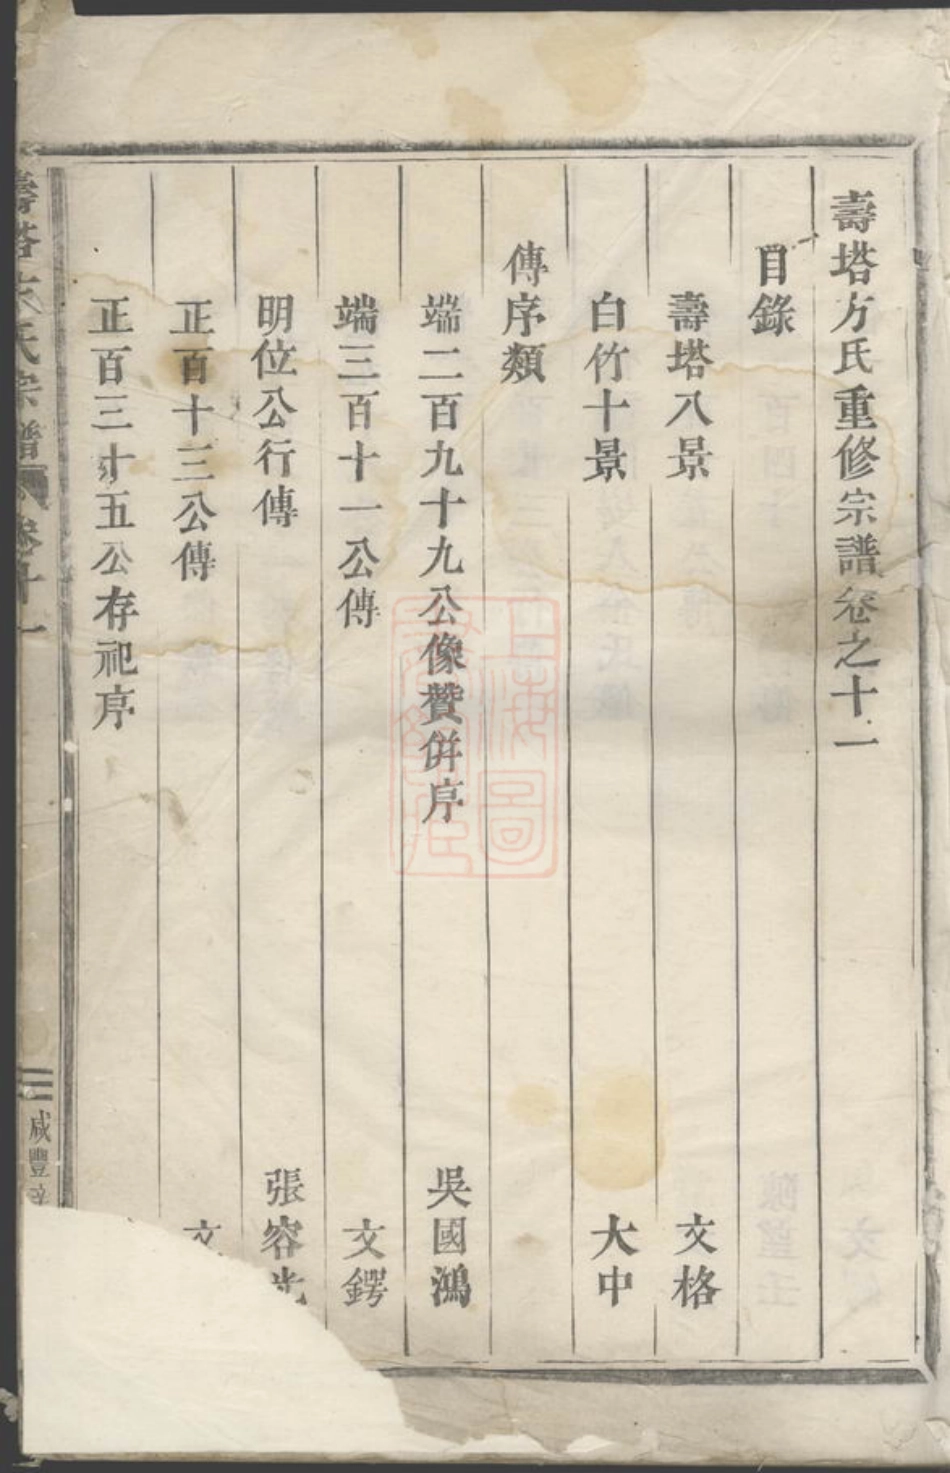 壽塔方氏重修宗譜卷之十一
目錄
壽塔八景 文格
白竹十景 大中
傳序類
端二百九十九公像贊併序 吳國鴻
端三百十一公傳 文鍔
明位公行傳 張容光
正百十三公傳 文
正百三十五公存祀序
壽塔方氏宗譜 卷十一
咸豐辛
上海圖書館藏